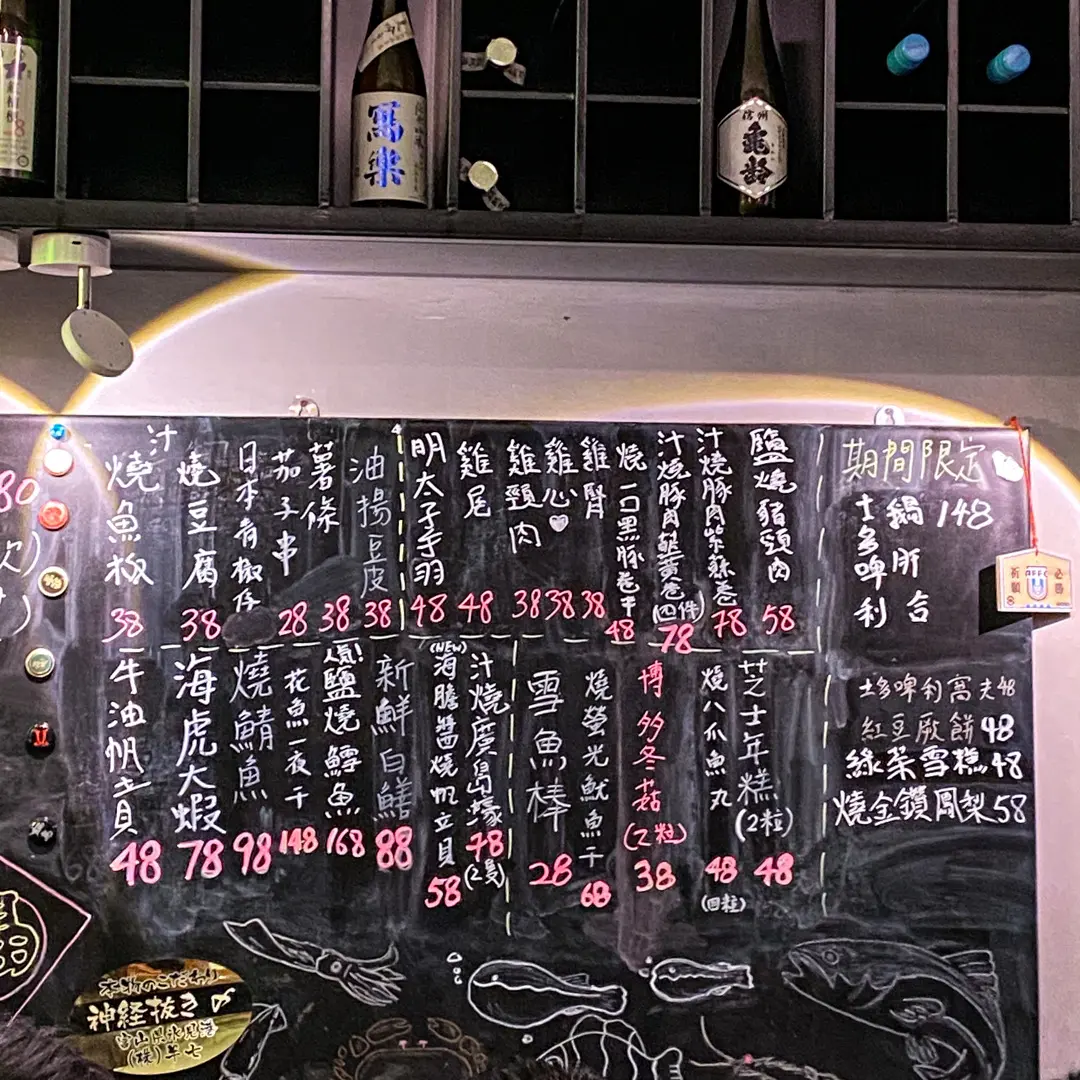 寫樂
信州
亀齢
期間限定
士多啤利
鍋
肝
合
148
士多啤利窩夫48
紅豆厥餅48
綠茶雪糕48
燒金鑽鳳梨58
鹽燒豬頸肉
58
汁燒豚肉
78
汁燒豚肉
(四件)
78
燒一口黑豚卷
48
雞腎
38
雞心
38
雞頸肉
38
雞尾
48
明太子手羽
48
油揚豆皮
38
薯條
38
茄子串
28
日本青椒仔
燒豆腐
38
汁燒魚板
38
芝士年糕
(2粒)
48
燒八爪魚丸
48
(四粒)
博多冬菇
(2粒)
38
燒螢光魷魚干
68
雪魚棒
28
汁燒廣島壕
78
(2隻)
(NEW)
海膽醬燒帆立貝
58
新鮮白鱔
88
人氣!
鹽燒鱈魚
168
花魚一夜干
148
燒鯖魚
98
海虎大蝦
78
牛油帆立貝
48
80
必勝
祈願
本物のこだわり
神経抜き〆
富山県氷見港